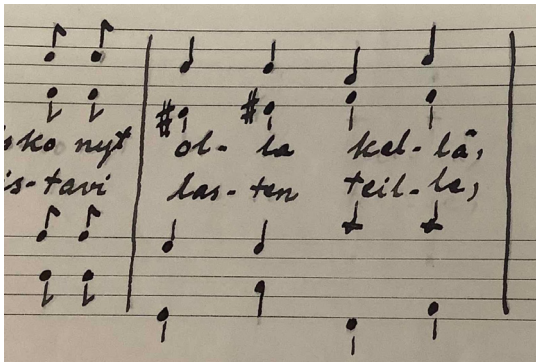 sko nyt ol-la kel-lä,
is-tavi las-ten teil-le,